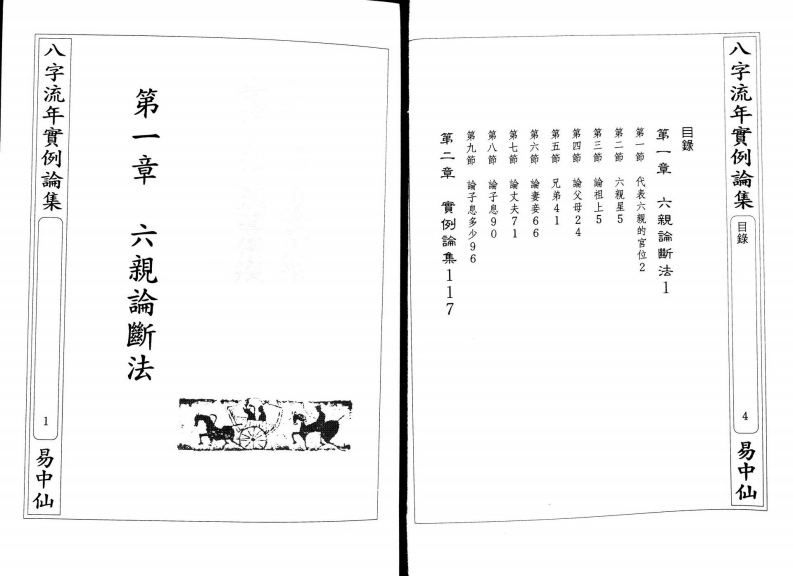 八字流年實例論集
目錄
4
易中仙
目錄
第一章 六親論斷法1
第一節 代表六親的宮位2
第二節 六親星5
第三節 論祖上5
第四節 論父母24
第五節 兄弟41
第六節 論妻妾66
第七節 論丈夫71
第八節 論子息90
第九節 論子息多少96
第二章 實例論集117
第一章 六親論斷法
八字流年實例論集
1
易中仙